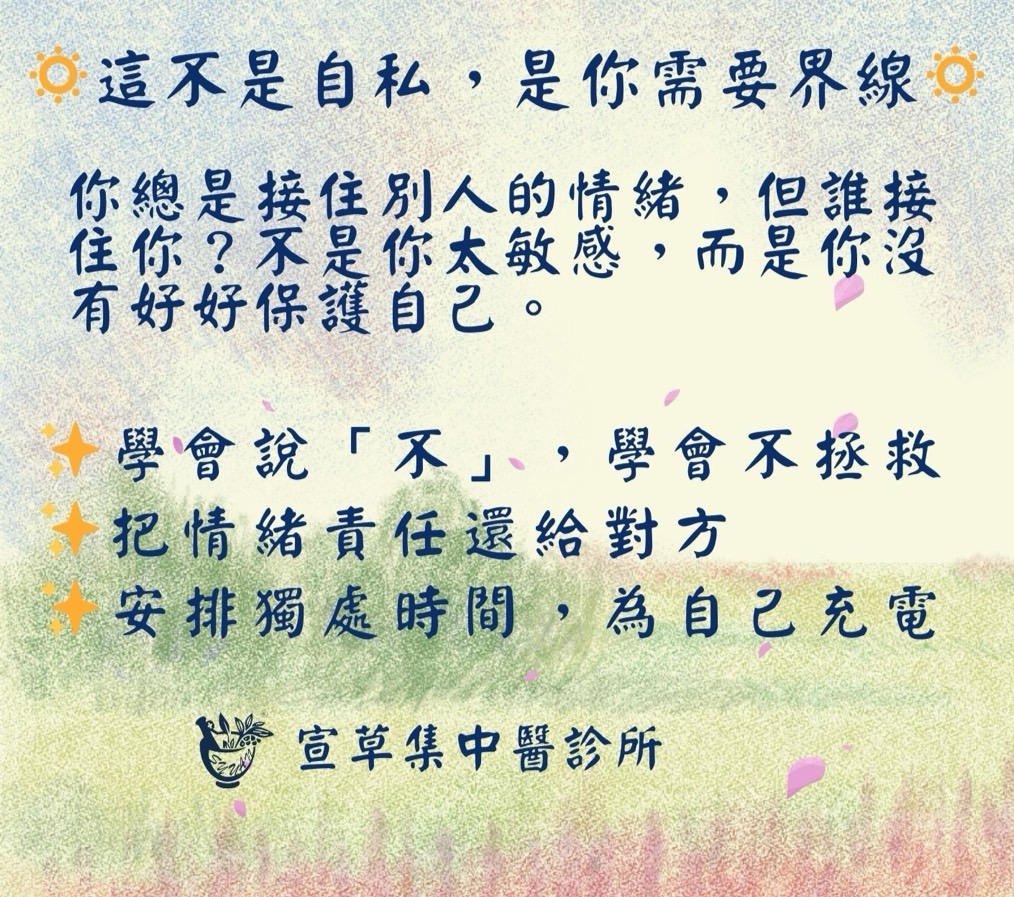 這不是自私，是你需要界線
你總是接住別人的情緒，但誰接
住你？不是你太敏感，而是你沒
有好好保護自己。
學會說「不」，學會不拯救
把情緒責任還給對方
安排獨處時間，為自己充電
宣草集中醫診所